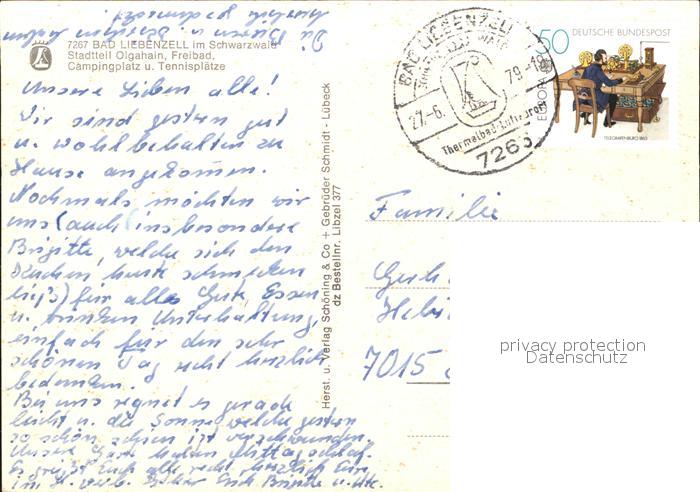 7267 BAD LIEBENZELL im Schwarzwald
Stadtteil Olgahain, Freibad,
Campingplatz u. Tennisplätze
Unsere Lieben alle!
Wir sind gestern gut
u. wohlbehalten zu
Hause angekommen.
Nochmals möchten wir
uns (auch insbesondere
Brigitte, welche sich den
Kuchen hat schmecken
ließ) für alles Gute, Essen
u. trinken Unterhaltung,
einfach für den sehr
schönen Tag recht herzlich
bedanken.
Bei uns regnet es gerade
leicht u. die Sonne welche gestern
so schön schien ist verschwunden.
Unsere halten Mittagschlaf.
Es grüßt Euch alle recht herzlich Eure
Erich Brigitte u.
Die u.
Herst. u. Verlag Schöning & Co + Gebrüder Schmidt - Lübeck
dz Bestellnr. Libzel 377
BAD LIEBENZELL
27.-6. 79.-18
Thermalbad-Luftkurort
7263
50 DEUTSCHE BUNDESPOST
EUROPA
TELEGRAFENBÜRO 1863
Familie
Gerh
7015
privacy protection
Datenschutz